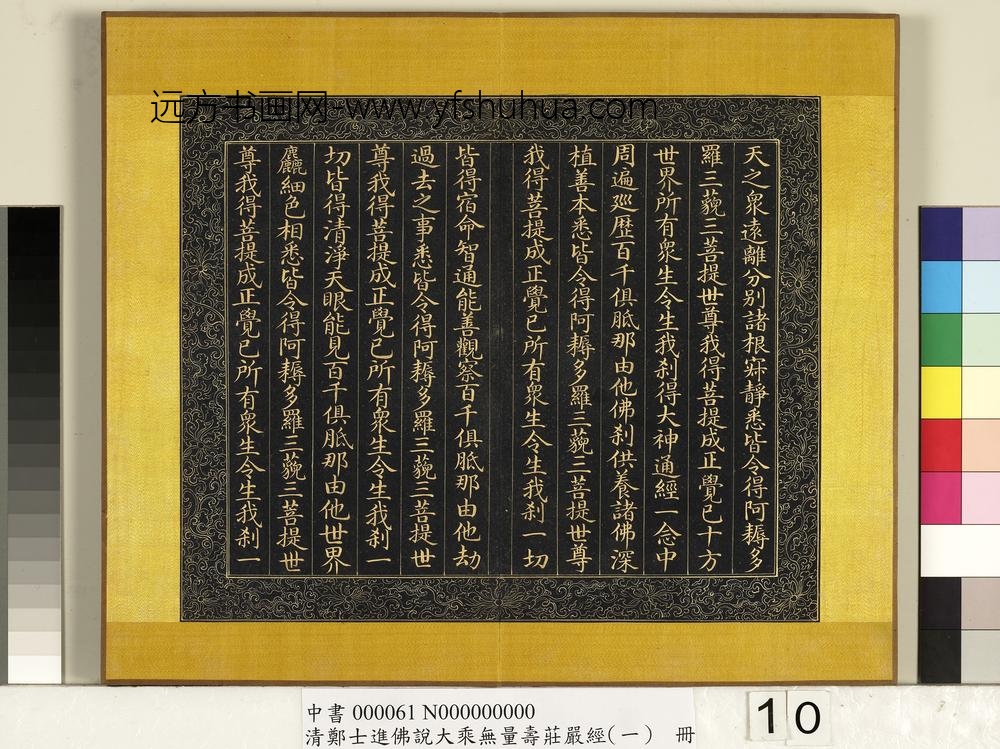 远方书画网-www.yfshuhua.com
天之眾遠離分别諸根寂靜悉皆令得阿耨多
羅三藐三菩提世尊我得菩提成正覺已十方
世界所有眾生令生我刹得大神通經一念中
周遍廵歷百千俱胝那由他佛刹供養諸佛深
植善本悉皆令得阿耨多羅三藐三菩提世尊
我得菩提成正覺已所有眾生令生我刹一切
皆得宿命智通能善觀察百千俱胝那由他劫
過去之事悉皆令得阿耨多羅三藐三菩提世
尊我得菩提成正覺已所有眾生令生我刹一
切皆得清淨天眼能見百千俱胝那由他世界
麤細色相悉皆令得阿耨多羅三藐三菩提世
尊我得菩提成正覺已所有眾生令生我刹一
中書 000061 N000000000
清鄭士進佛說大乘無量壽莊嚴經(一) 冊
10